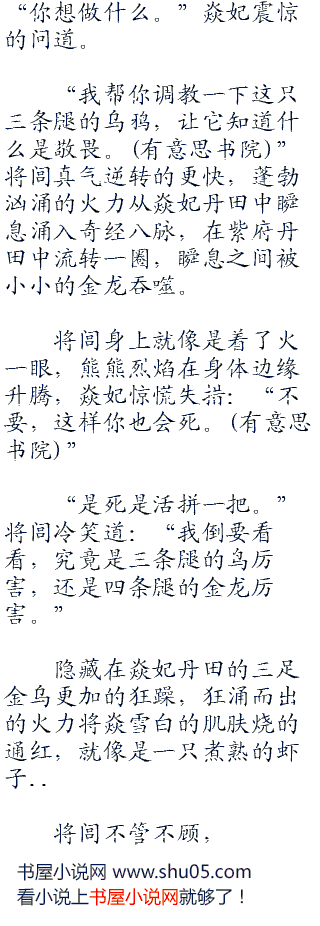 “你想做什么。”焱妃震惊
的问道。
“我帮你调教一下这只
三条腿的乌鸦，让它知道什
么是敬畏。(有意思书院)”
将闾真气逆转的更快，蓬勃
汹涌的火力从焱妃丹田中瞬
息涌入奇经八脉，在紫府丹
田中流转一圈，瞬息之间被
小小的金龙吞噬。
将闾身上就像是着了火
一眼，熊熊烈焰在身体边缘
升腾，焱妃惊慌失措：“不
要，这样你也会死。(有意思
书院)”
“是死是活拼一把。”
将闾冷笑道：“我倒要看
看，究竟是三条腿的鸟厉
害，还是四条腿的金龙厉
害。”
隐藏在焱妃丹田的三足
金乌更加的狂躁，狂涌而出
的火力将焱雪白的肌肤烧的
通红，就像是一只煮熟的虾
子..
将闾不管不顾，
书屋小说网 www.shu05.com
看小说上书屋小说网就够了！